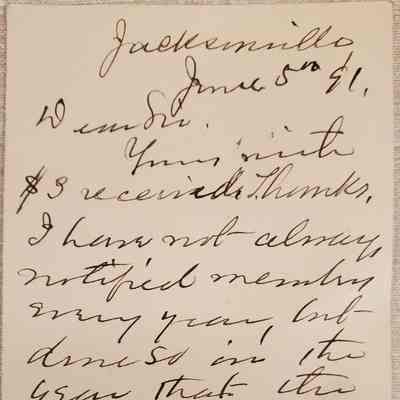 Jacksonville,
June 5th 91.
Dear Sir.
Yours with
$3 received. Thanks.
I have not always
notified members
every year, but
done so in the
year that the